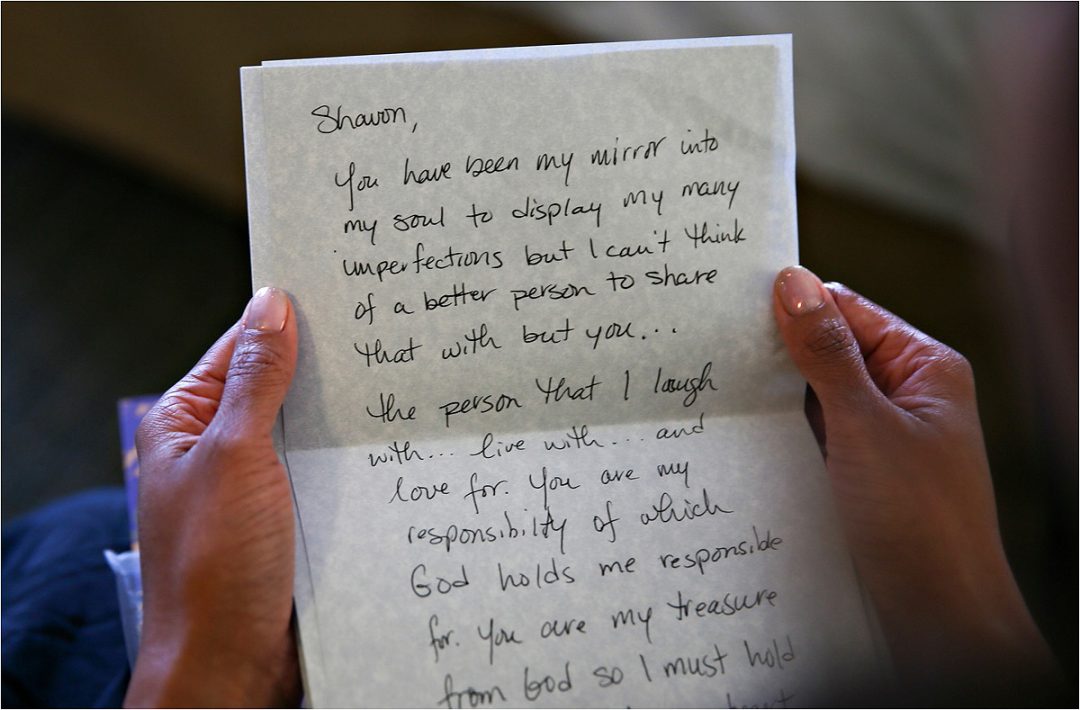 Shavon,
You have been my mirror into
my soul to display my many
imperfections but I can't think
of a better person to share
that with but you...
the person that I laugh
with... live with... and
love for. You are my
responsibility of which
God holds me responsible
for. You are my treasure
from God so I must hold